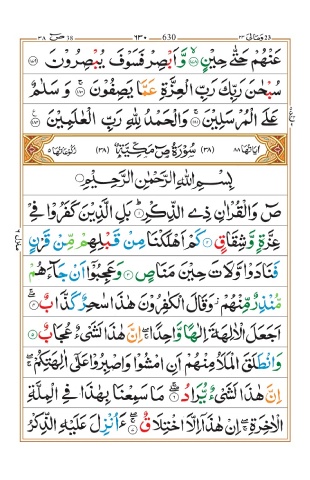 وَمَالِیَ ٢٣ ٦٣٠ 630 صٓ ٣٨
عَنْهُمْ حَتّٰى حِيْنٍ ۙ﴿۱۷۸﴾ وَّاَبْصِرْ فَسَوْفَ يُبْصِرُوْنَ ﴿۱۷۹﴾
سُبْحٰنَ رَبِّكَ رَبِّ الْعِزَّةِ عَمَّا يَصِفُوْنَ ۚ﴿۱۸۰﴾ وَ سَلٰمٌ
عَلَى الْمُرْسَلِيْنَ ۚ﴿۱۸۱﴾ وَالْحَمْدُ لِلّٰهِ رَبِّ الْعٰلَمِيْنَ ﴿۱۸۲﴾
اٰيَاتُهَا ٨٨ (٣٨) سُوْرَةُ صٓ مَكِّيَّةٌ (٣٨) رُكُوْعَاتُهَا ٥
بِسْمِ اللّٰهِ الرَّحْمٰنِ الرَّحِيْمِ
صٓ وَالْقُرْاٰنِ ذِى الذِّكْرِ ؕ﴿۱﴾ بَلِ الَّذِيْنَ كَفَرُوْا فِىْ
عِزَّةٍ وَّشِقَاقٍ ﴿۲﴾ كَمْ اَهْلَكْنَا مِنْ قَبْلِهِمْ مِّنْ قَرْنٍ
فَنَادَوْا وَّلَاتَ حِيْنَ مَنَاصٍ ﴿۳﴾ وَعَجِبُوْۤا اَنْ جَآءَهُمْ
مُّنْذِرٌ مِّنْهُمْ ۫ وَقَالَ الْكٰفِرُوْنَ هٰذَا سٰحِرٌ كَذَّابٌ ۖۚ﴿۴﴾
اَجَعَلَ الْاٰلِهَةَ اِلٰهًا وَّاحِدًا ۖۚ اِنَّ هٰذَا لَشَىْءٌ عُجَابٌ ﴿۵﴾
وَانْطَلَقَ الْمَلَاُ مِنْهُمْ اَنِ امْشُوْا وَاصْبِرُوْا عَلٰٓى اٰلِهَتِكُمْ ۖۚ
اِنَّ هٰذَا لَشَىْءٌ يُّرَادُ ۖۚ﴿۶﴾ مَا سَمِعْنَا بِهٰذَا فِى الْمِلَّةِ
الْاٰخِرَةِ ۖۚ اِنْ هٰذَاۤ اِلَّا اخْتِلَاقٌ ۖۚ﴿۷﴾ ءَاُنْزِلَ عَلَيْهِ الذِّكْرُ